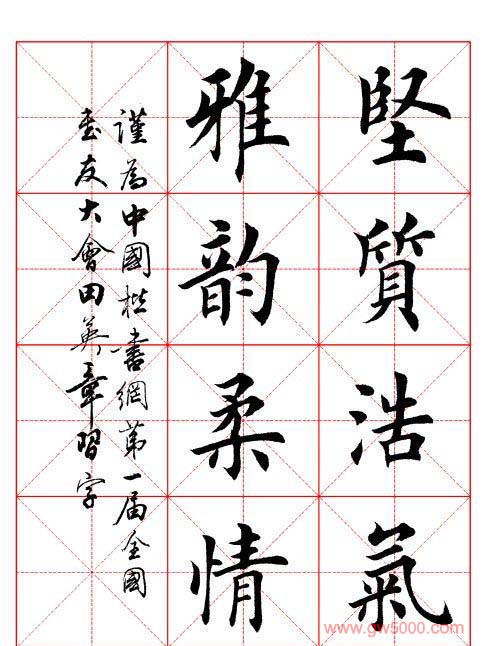 堅質浩氣
雅韵柔情
謹為中國楷書網第一届全國
書友大會田英章習字
www.gw5000.com